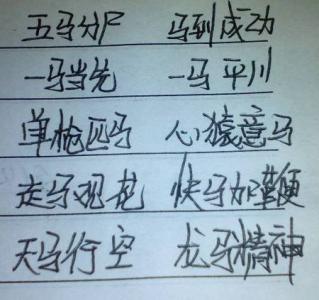 五马分尸 马到成功
一马当先 一马平川
单枪匹马 心猿意马
走马观花 快马加鞭
天马行空 龙马精神